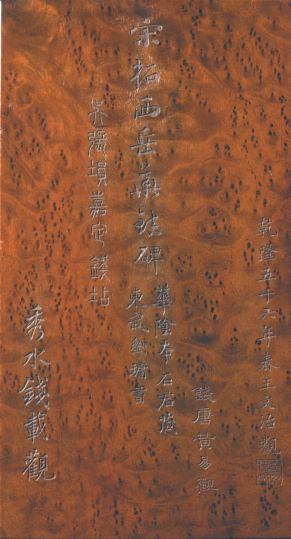 乾隆五十六年春王文治觀
錢唐黃易觀
華陰本石君藏
東武劉墉書
宋拓西岳華碑
吳張塤嘉定錢坫
秀水錢載觀